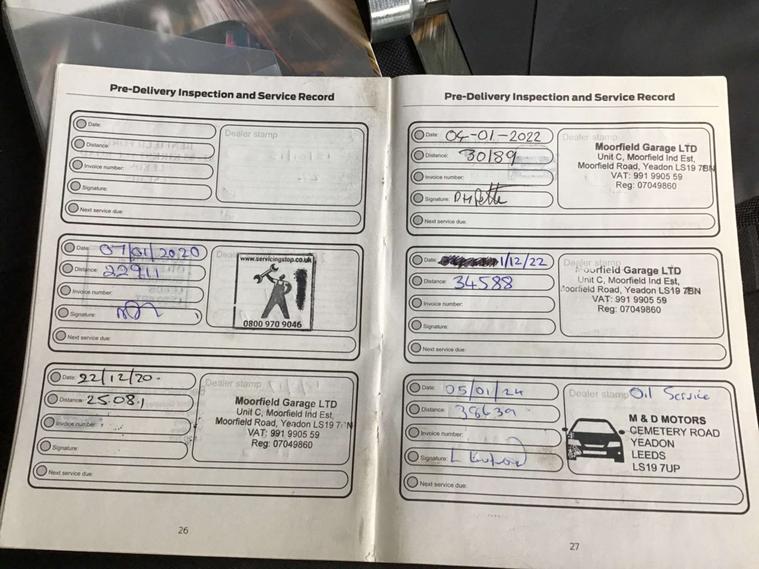 Pre-Delivery Inspection and Service Record
Date:
Dealer stamp
Distance:
Invoice number:
Signature:
Next service due:
Date: 07/01/2020
Distance: 22911
Invoice number:
Signature:
Next service due:
www.servicingstop.co.uk
0800 970 9046
Date: 22/12/20.
Distance: 25081
Invoice number:
Signature:
Next service due:
Dealer stamp
Moorfield Garage LTD
Unit C, Moorfield Ind Est,
Moorfield Road, Yeadon LS19 7BN
VAT: 991 9905 59
Reg: 07049860
26
Pre-Delivery Inspection and Service Record
Date: 04-01-2022
Distance: 30189
Invoice number:
Signature:
Next service due:
Dealer stamp
Moorfield Garage LTD
Unit C, Moorfield Ind Est,
Moorfield Road, Yeadon LS19 7BN
VAT: 991 9905 59
Reg: 07049860
Date: 1/12/22
Distance: 34588
Invoice number:
Signature:
Next service due:
Dealer stamp
Moorfield Garage LTD
Unit C, Moorfield Ind Est,
Moorfield Road, Yeadon LS19 7BN
VAT: 991 9905 59
Reg: 07049860
Date: 05/01/24
Distance: 38639
Invoice number:
Signature:
Next service due:
Dealer stamp Oil Service
M & D MOTORS
CEMETERY ROAD
YEADON
LEEDS
LS19 7UP
27